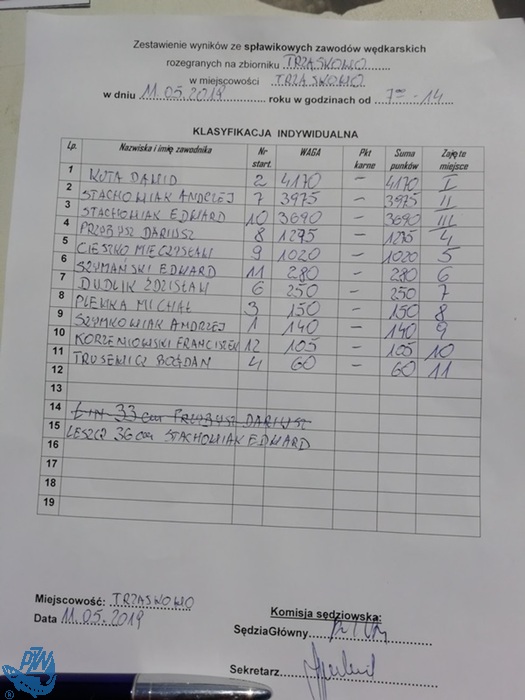 Zestawienie wyników ze spławikowych zawodów wędkarskich
rozegranych na zbiorniku TRZASKOWO
w miejscowości TRZASKOWO
w dniu 11.05.2019 roku w godzinach od 7⁰⁰ - 14
KLASYFIKACJA INDYWIDUALNA
Lp. Nazwiska i imię zawodnika Nr start. WAGA Pkt karne Suma punków Zajęte miejsce
1 KUTA DAWID 2 4170 - 4170 I
2 STACHOWIAK ANDRZEJ 7 3975 - 3975 II
3 STACHOWIAK EDWARD 10 3690 - 3690 III
4 PRZOBYSZ DARIUSZ 8 1275 - 1275 4
5 CIESZKO MIECZYSŁAW 9 1020 - 1020 5
6 SZYMAŃSKI EDWARD 11 280 - 280 6
7 DUDLIK ZDZISŁAW 6 250 - 250 7
8 PLEWKA MICHAŁ 3 150 - 150 8
9 SZYMKOWIAK ANDRZEJ 1 140 - 140 9
10 KORZENIOWSKI FRANCISZEK 12 105 - 105 10
11 BOGDAN 4 60 - 60 11
12
13
14 LIN 33 cm PRZOBYSZ DARIUSZ
15 LESZCZ 36 cm STACHOWIAK EDWARD
16
17
18
19
Miejscowość: TRZASKOWO
Data 11.05.2019
Komisja sędziowska:
SędziaGłówny
Sekretarz
PZW